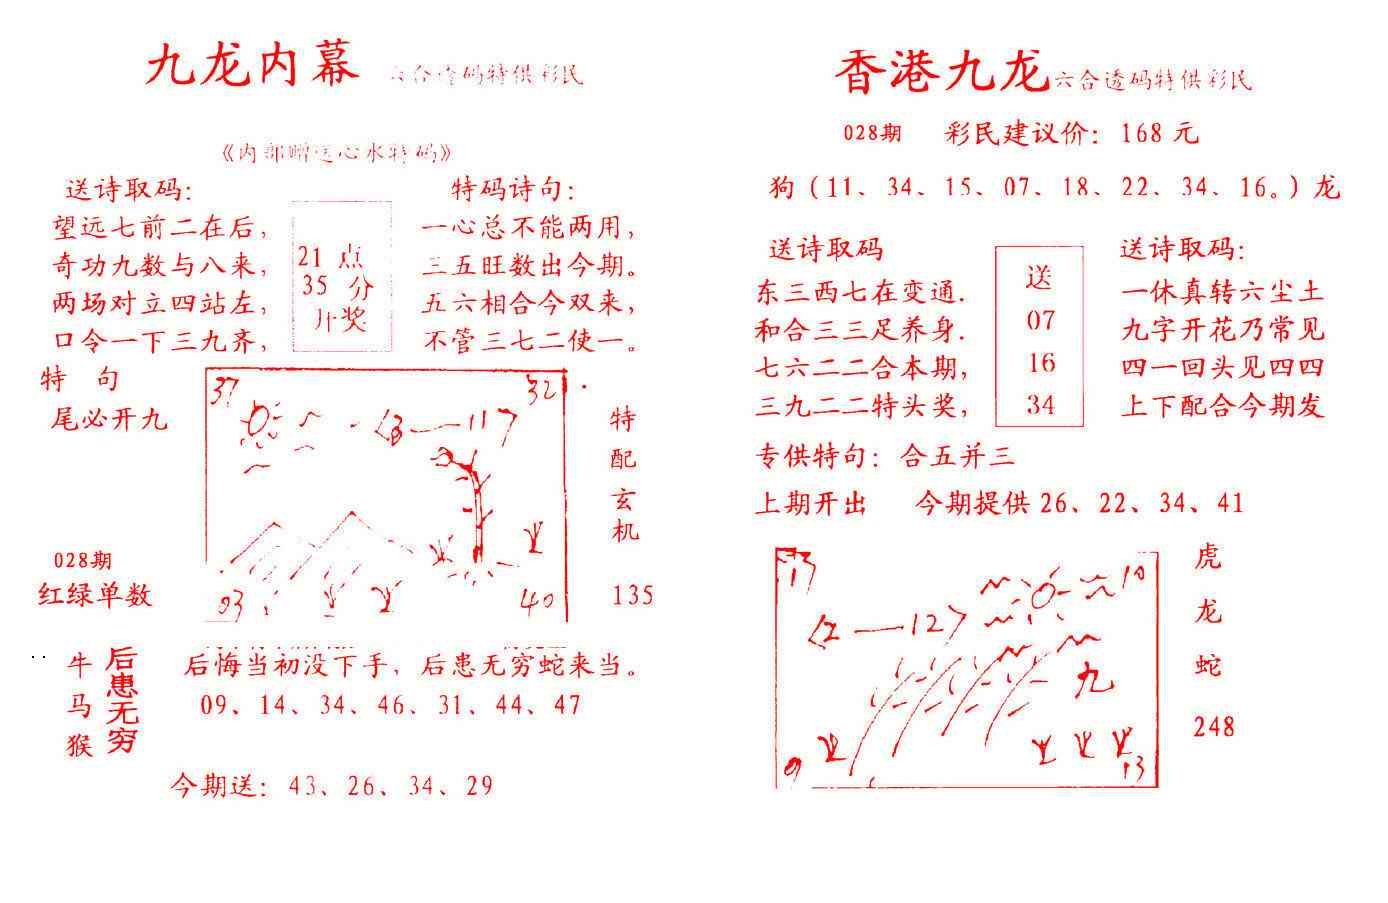 九龙内幕 六合透码特供彩民
《内部赠送心水特码》
送诗取码：
望远七前二在后，
奇功九数与八来，
两场对立四站左，
口令一下三九齐，
21 点
35 分
开奖
特码诗句：
一心总不能两用，
三五旺数出今期。
五六相合今双来，
不管三七二使一。
特 句
尾必开九
028期
红绿单数
37
32
〈3—11〉
03
40
特
配
玄
机
135
牛
马
猴
后患无穷
后悔当初没下手，后患无穷蛇来当。
09、14、34、46、31、44、47
今期送：43、26、34、29
香港九龙 六合透码特供彩民
028期 彩民建议价：168 元
狗（11、34、15、07、18、22、34、16。）龙
送诗取码
东三西七在变通.
和合三三足养身.
七六二二合本期，
三九二二特头奖，
送
07
16
34
送诗取码：
一休真转六尘土
九字开花乃常见
四一回头见四四
上下配合今期发
专供特句：合五并三
上期开出 今期提供 26、22、34、41
17
10
〈2—12〉
九
9
13
虎
龙
蛇
248